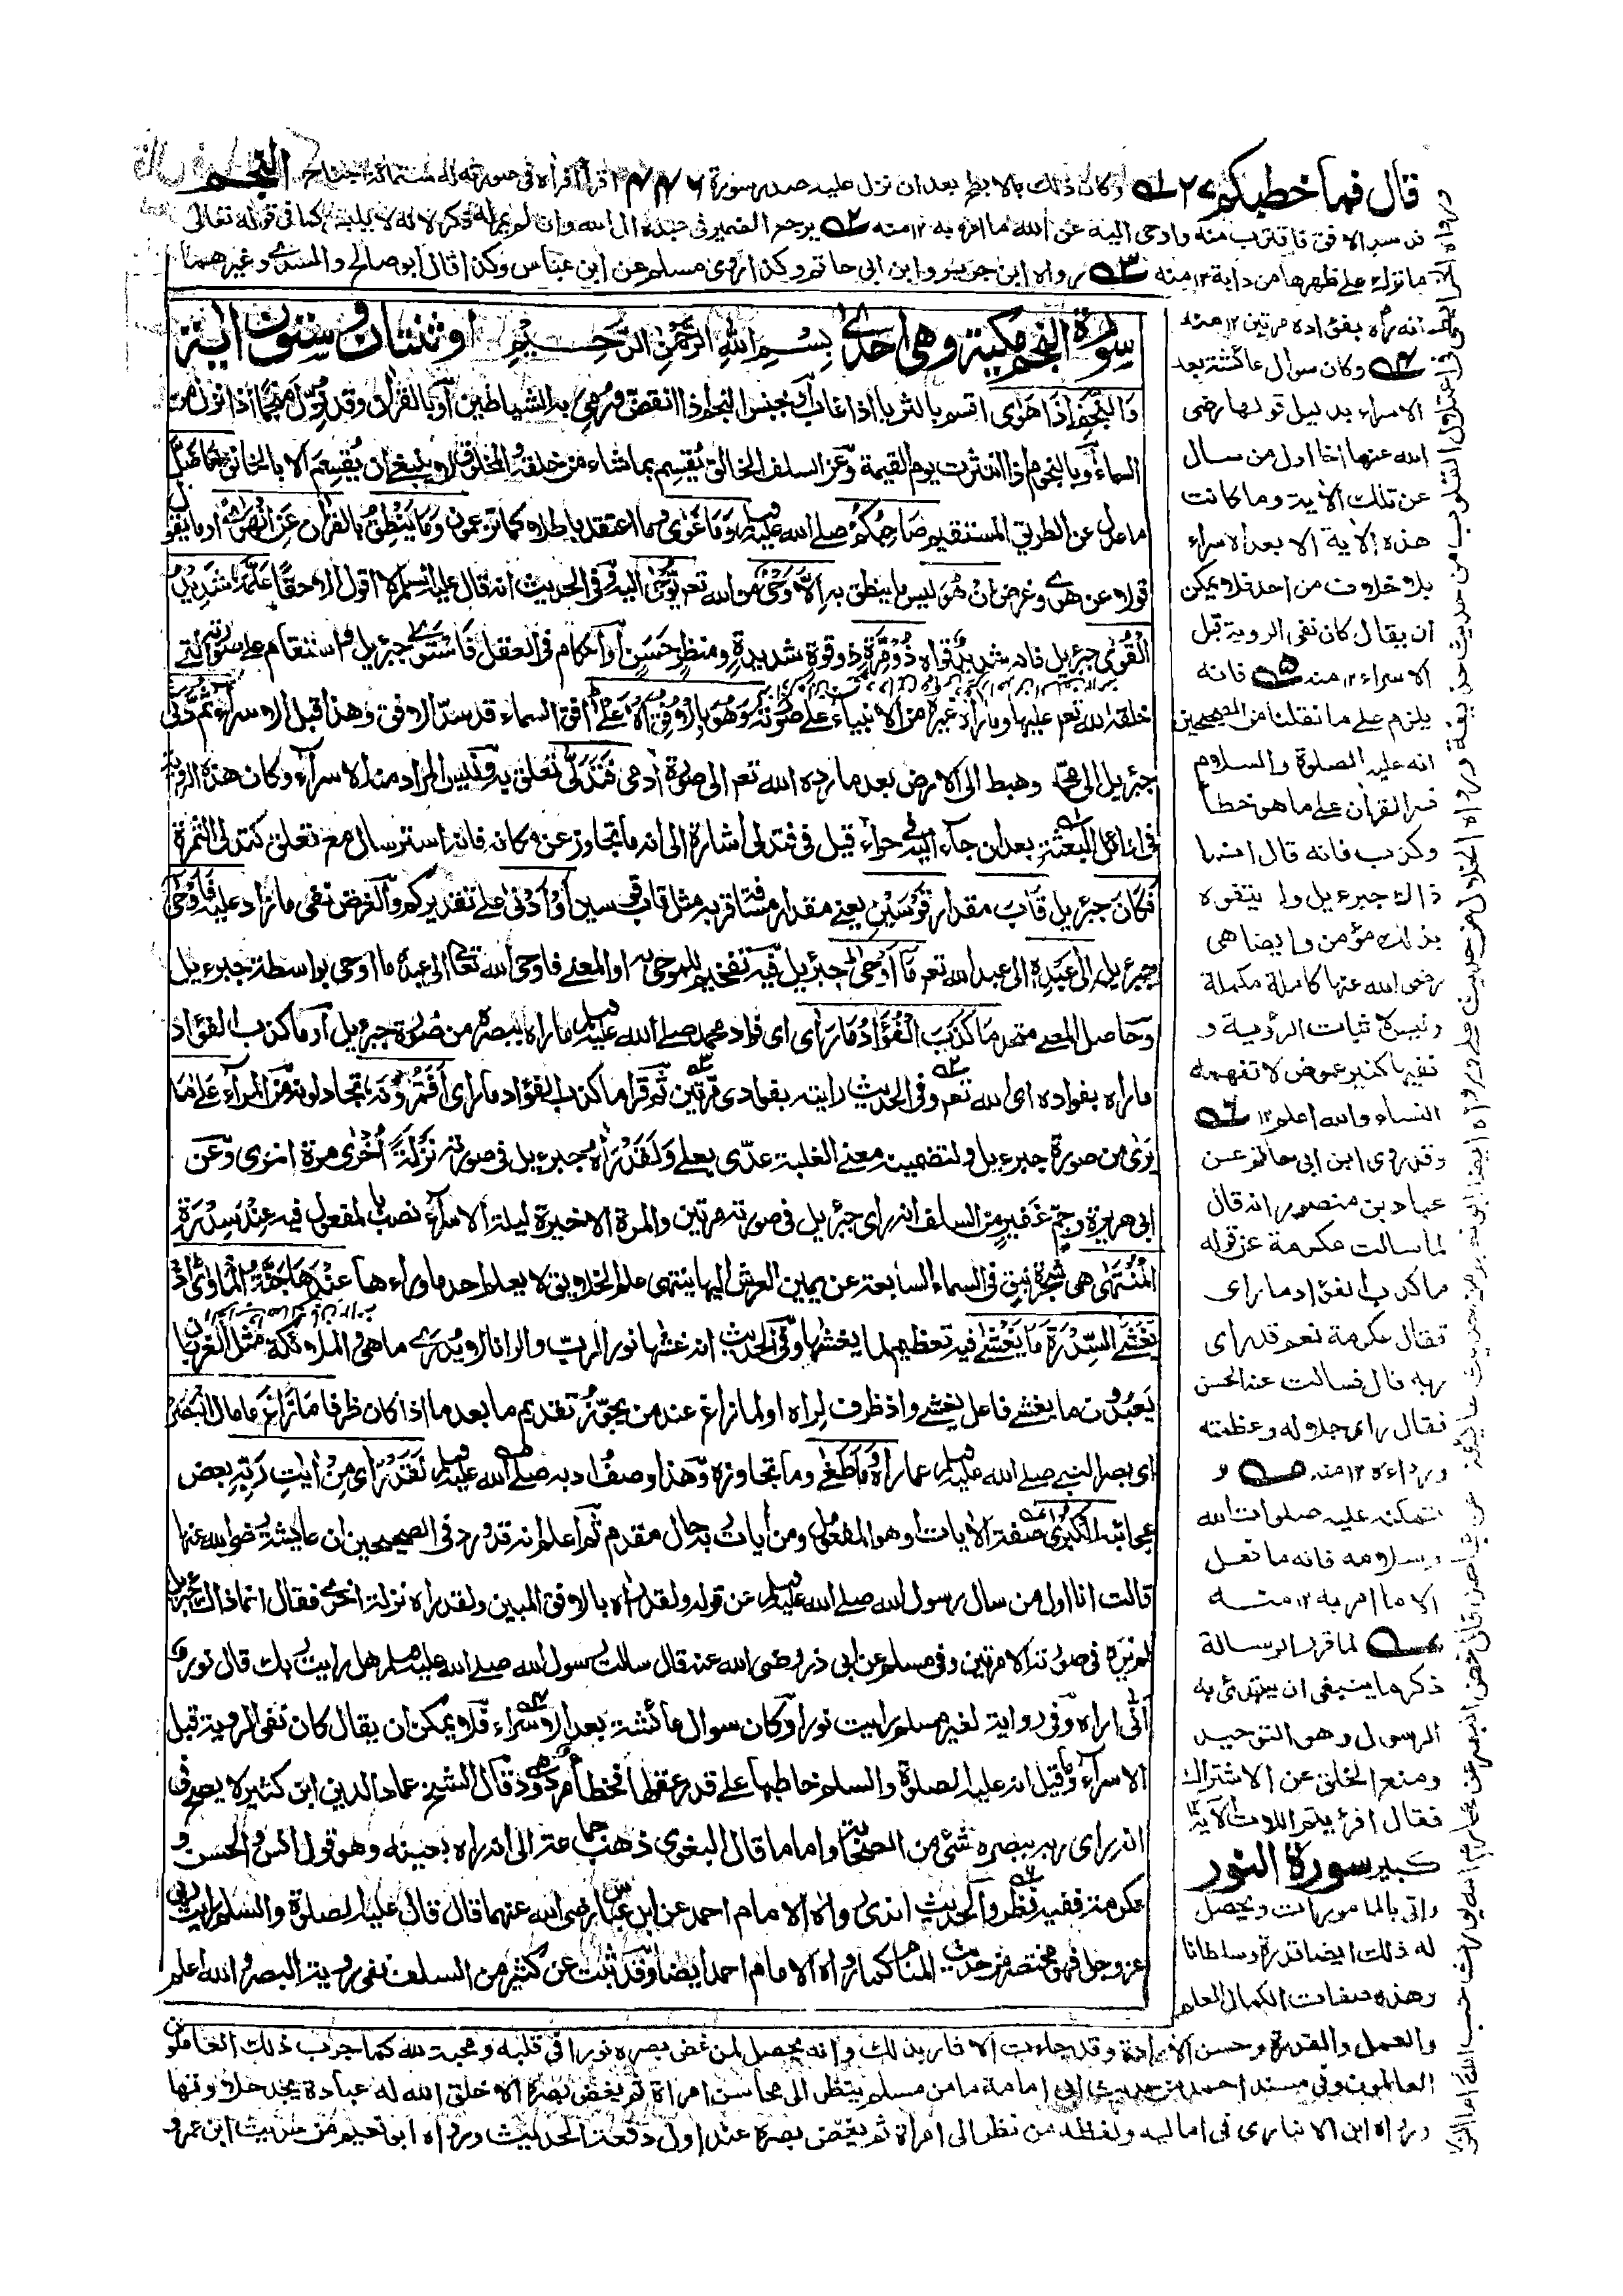 قال فما خطبكم ٢٧
النجم
وكان ذلك بالابطح بعد ان نزل عليه صدر سورة اقرأ فرآه في صورته له ستمائة جناح
قد سد الافق فاقترب منه واوحى اليه عن الله ما امر به ١٢ منه يرجع الضمير في عبده الى الله وان لم يجر له ذكر لانه لا يلبس كما في قوله تعالى
ما ترك على ظهرها من دابة ١٢ منه رواه ابن جرير وابن ابي حاتم وكذا روى مسلم عن ابن عباس وكذا قال ابو صالح والسدي وغيرهما
سورة النجم مكية وهي احدى بسم الله الرحمن الرحيم او ثنتان وستون اية
والنجم اذا هوى اقسم بالثريا اذا غاب او بجنس النجم اذا انقض ورمي به الشياطين او بالقرآن وقد نزل منجما اذا نزل من
السماء او بالنجوم اذا انتثرت يوم القيمة وعن السلف الخالق يقسم بما شاء من خلقه والمخلوق لا ينبغي ان يقسم الا بالخالق ما ضل
ما عدل عن الطريق المستقيم صاحبكم صلى الله عليه وسلم وما غوى ما اعتقد باطلا كما تزعمون وما ينطق بالقرآن عن الهوى او ما يقول
قولا عن هوى وغرض ان هو ليس ما ينطق به الا وحي من الله تعم يوحى اليه وفي الحديث انه قال عليه السلام لا اقول الا حقا علمه شديد
القوى جبرئيل فانه شديد قواه ذو مرة ذو قوة شديدة ومنظر حسن او احكام في العقل فاستوى جبرئيل واستقام على صورته التي
خلقه الله تعم عليها وما رآه غيره من الانبياء على صورته وهو بالافق الاعلى افق السماء قد سد الافق وهذا قبل الاسراء ثم دنى
جبرئيل الى محمد وهبط الى الارض بعد ما رده الله تعم الى صورة آدمي فتدلى تعلق به وليس المراد منه الاسراء وكان هذه الروية
في اوائل البعثة بعد ان جاء اليه في حراء قيل في فتدلى اشارة الى انه ما تجاوز عن مكانه فانه استرسال مع تعلق كتدلى الثمرة
فكان جبرئيل قاب مقدار قوسين يعني مقدار مسافة قربه مثل قاب قوسين او ادنى على تقديركم والغرض نفي ما زاد عليه فاوحى
جبرءيل الى عبده الى عبد الله تعم ما اوحى جبرئيل فيه تفخيم للموحى به او المعنى فاوحى الله تعالى الى عبده ما اوحى بواسطة جبرءيل
وحاصل المعنى متحد ما كذب الفؤاد ما راى اى فواد محمد صلى الله عليه وسلم ما راه ببصره من صورة جبرئيل او ما كذب الفؤاد
ما راه بفواده اى الله تعم وفي الحديث رايته بفوادى مرتين ثم قرا ما كذب الفؤاد ما راى افتمرونه تجادلونه من المراء على ما
يرى من صورة جبرءيل ولتضمين معنى الغلبة عدى بعلى ولقد راه جبرءيل في صورته نزلة اخرى مرة اخرى وعن
ابي هريرة وجم غفير من السلف انه راى جبرئيل في صورته مرتين والمرة الاخيرة ليلة الاسراء نصب المفعول فيه عند سدرة
المنتهى هي شجرة نبق في السماء السابعة عن يمين العرش اليها ينتهى علم الخلايق لا يعلم احد ما وراءها عندها جنة الماوى اذ
يغشى السدرة ما يغشى فيه تعظيم لما يغشها وفي الحديث انه غشها نور الرب والوانا لا يدرى ما هي والملائكة مثل الغربان
يعبدون ما يغشى فاعل يغشى واذ ظرف لراه او لما زاغ عند من يجوز تقديم ما بعد ما اذا كان ظرفا ما زاغ ما مال البصر
اى بصر النبي صلى الله عليه وسلم عما راه وما طغى وما تجاوزه وهذا وصف ادبه صلى الله عليه وسلم لقد راى من ايت ربه بعض
عجائبه الكبرى صفة الايات او هو المفعول ومن ايات ربه حال مقدم ثم اعلم انه قد ورد في الصحيحين ان عايشة رضي الله عنها
قالت انا اول من سال رسول الله صلى الله عليه وسلم عن قوله ولقد راه بالافق المبين ولقد راه نزلة اخرى فقال انما ذاك جبريل
لم يره في صورته الا مرتين وفي مسلم عن ابي ذر رضي الله عنه قال سالت رسول الله صلى الله عليه وسلم هل رايت ربك قال نور
انى اراه وفي رواية لغير مسلم رايت نورا وكان سوال عائشة بعد الاسراء فلا يمكن ان يقال كان نفى الروية قبل
الاسراء وقيل انه عليه الصلوة والسلم خاطبها على قدر عقلها فخطأ مردود قال الشيخ عماد الدين ابن كثير لا يصح في
انه راى ربه ببصره شئ من الصحابة واما ما قال البغوي ذهب جماعة الى انه راه بعينه وهو قول انس والحسن و
عكرمة ففيه نظر والحديث الذى رواه الامام احمد عن ابن عباس رضي الله عنهما قال قال عليه الصلوة والسلم رايت ربى
عز وجل فهو مختصر من حديث المنام كما رواه الامام احمد ايضا وقد ثبت عن كثير من السلف نفى روية البصر والله اعلم
انه رآه بفؤاده مرتين ١٢ منه
وكان سوال عائشة بعد
الاسراء بدليل قولها رضى
الله عنها انا اول من سال
عن تلك الآية وما كانت
هذه الاية الا بعد الاسراء
بلا خلاف من احد فلا يمكن
ان يقال كان نفى الروية قبل
الاسراء ١٢ منه فانه
يلزم على ما نقلنا من الصحيحين
انه عليه الصلوة والسلام
فسر القرآن على ما هو خطأ
وكذب فانه قال انما
ذاك جبرءيل ولا يتفوه
بذلك مؤمن وايضا هى
رضى الله عنها كاملة مكملة
وليس لاثبات الرؤية و
نفيها كثير غموض لا تفهمه
النساء والله اعلم ١٢
وقد روى ابن ابي حاتم عن
عباد بن منصور انه قال
لما سالت عكرمة عن قوله
ما كذب الفؤاد ما راى
فقال عكرمة نعم قد راى
ربه قال فسالت عنه الحسن
فقال راى جلاله وعظمته
ورداءه ١٢ منه و
تمكنه عليه صلوات الله
وسلامه فانه ما فعل
الا ما امر به ١٢ منه
لما قرر الرسالة
ذكر ما ينبغى ان يبتدئ به
الرسول وهو التوحيد
ومنع الخلق عن الاشتراك
فقال افرأيتم اللات الآية
كبير سورة النور
واتى بالمامورات ويحصل
له ذلك ايضا قدرة وسلطانا
وهذه صفات الكمال العلم
والعمل والقدرة وحسن الارادة وقد جاءت الاثار بذلك وانه يحصل لمن غض بصره نورا في قلبه ومحبة لله كما جرب ذلك العاملون
العالمون وفي مسند احمد من حديث ابى امامة ما من مسلم ينظر الى محاسن امراة ثم يغض بصره الا خلق الله له عبادة يجد حلاوتها
ورواه ابن الانبارى في اماليه ولفظه من نظر الى امراة ثم يغض بصره عند اول دفعة الحديث ورواه ابو نعيم من حديث ابن عمر و